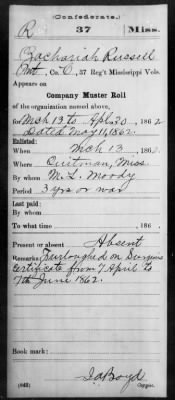 (Confederate.)
R 37 Miss.
Zachariah Russell
Pvt, Co. C, 37 Reg't Mississippi Vols.
Appears on
Company Muster Roll
of the organization named above,
for Mch 13 to Apl 30, 1862
Dated May 11, 1862.
Enlisted:
When Mch 13, 1862
Where Quitman, Miss.
By whom M. L. Moody
Period 3 yrs or war
Last paid:
By whom
To what time , 186 .
Present or absent Absent
Remarks: Furloughed on Surgeons
Certificate from 7 April to
7th June 1862.
Book mark:
J. A. Boyd
(642) Copyist.